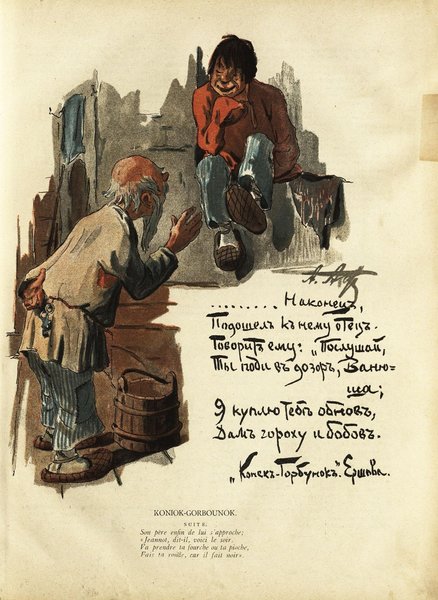 ......... Наконецъ,
Подошелъ къ нему отецъ.
Говоритъ ему: „Послушай,
Ты поди въ дозоръ, Ваню-
ша;
Я куплю тебѣ обновъ,
Дамъ гороху и бобовъ.
„Конекъ-Горбунокъ“ Ершова.
KONIOK-GORBOUNOK.
SUITE.
Son père enfin de lui s'approche;
«Jeannot, dit-il, voici le soir.
Va prendre ta fourche ou ta pioche,
Fais ta ronde, car il fait noir».